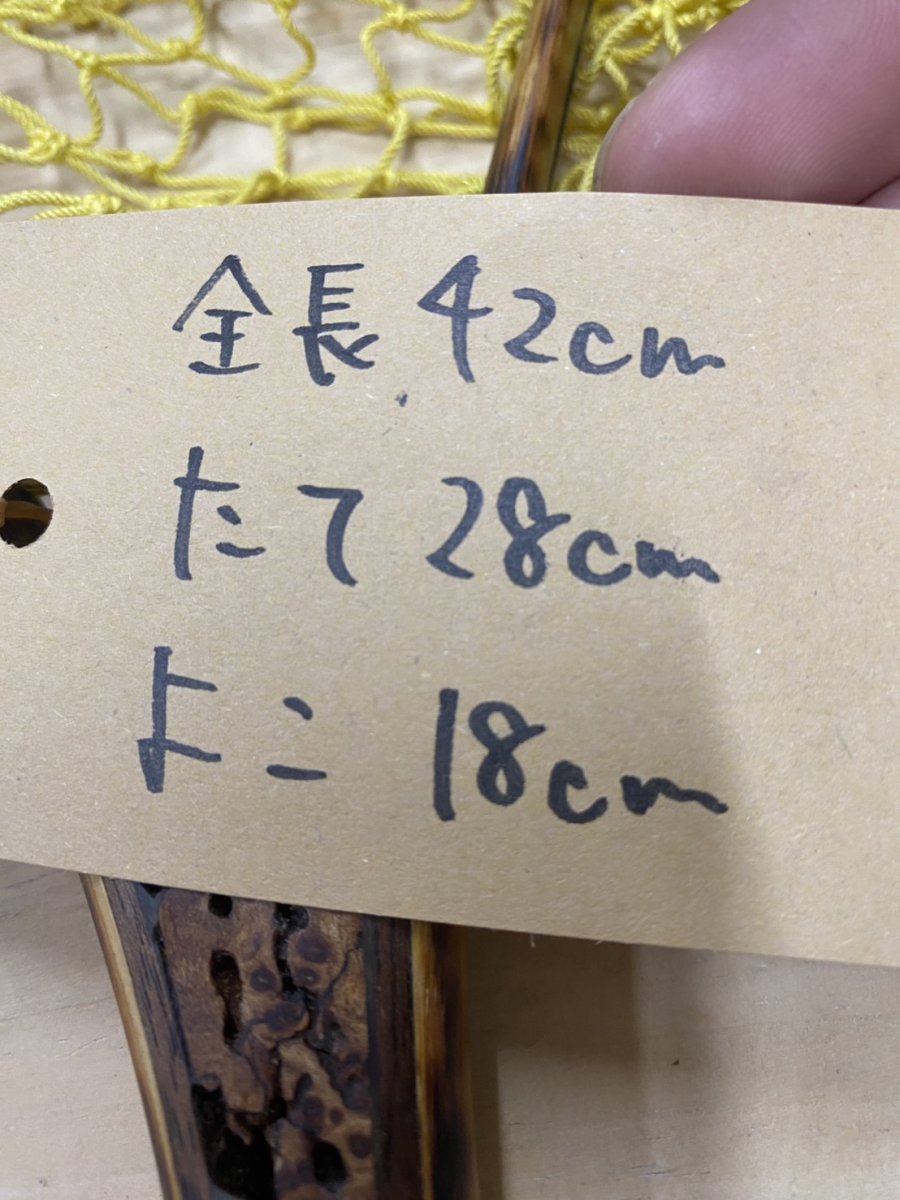 全長 42cm
たて 28cm
よこ 18cm